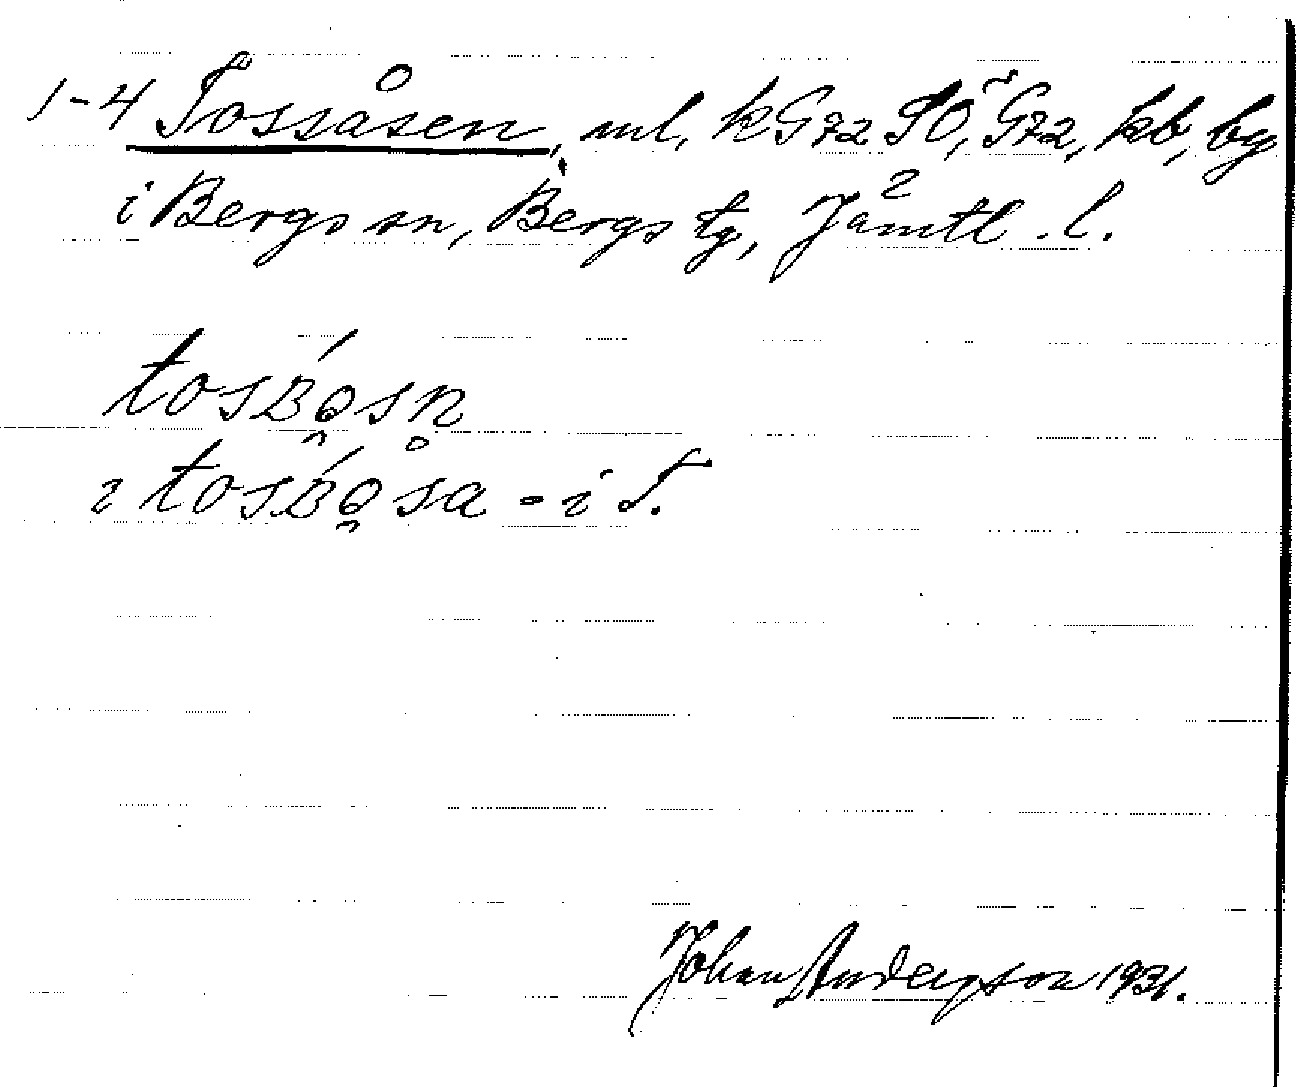 1-4 Tossåsen, ml, kG72 SO, G72, kb, by
i Bergs sn, Bergs tg, Jämtl. l.
tosƨǫsn̥
i tosƨǫsa - i T.
Johan Anderson 1931.